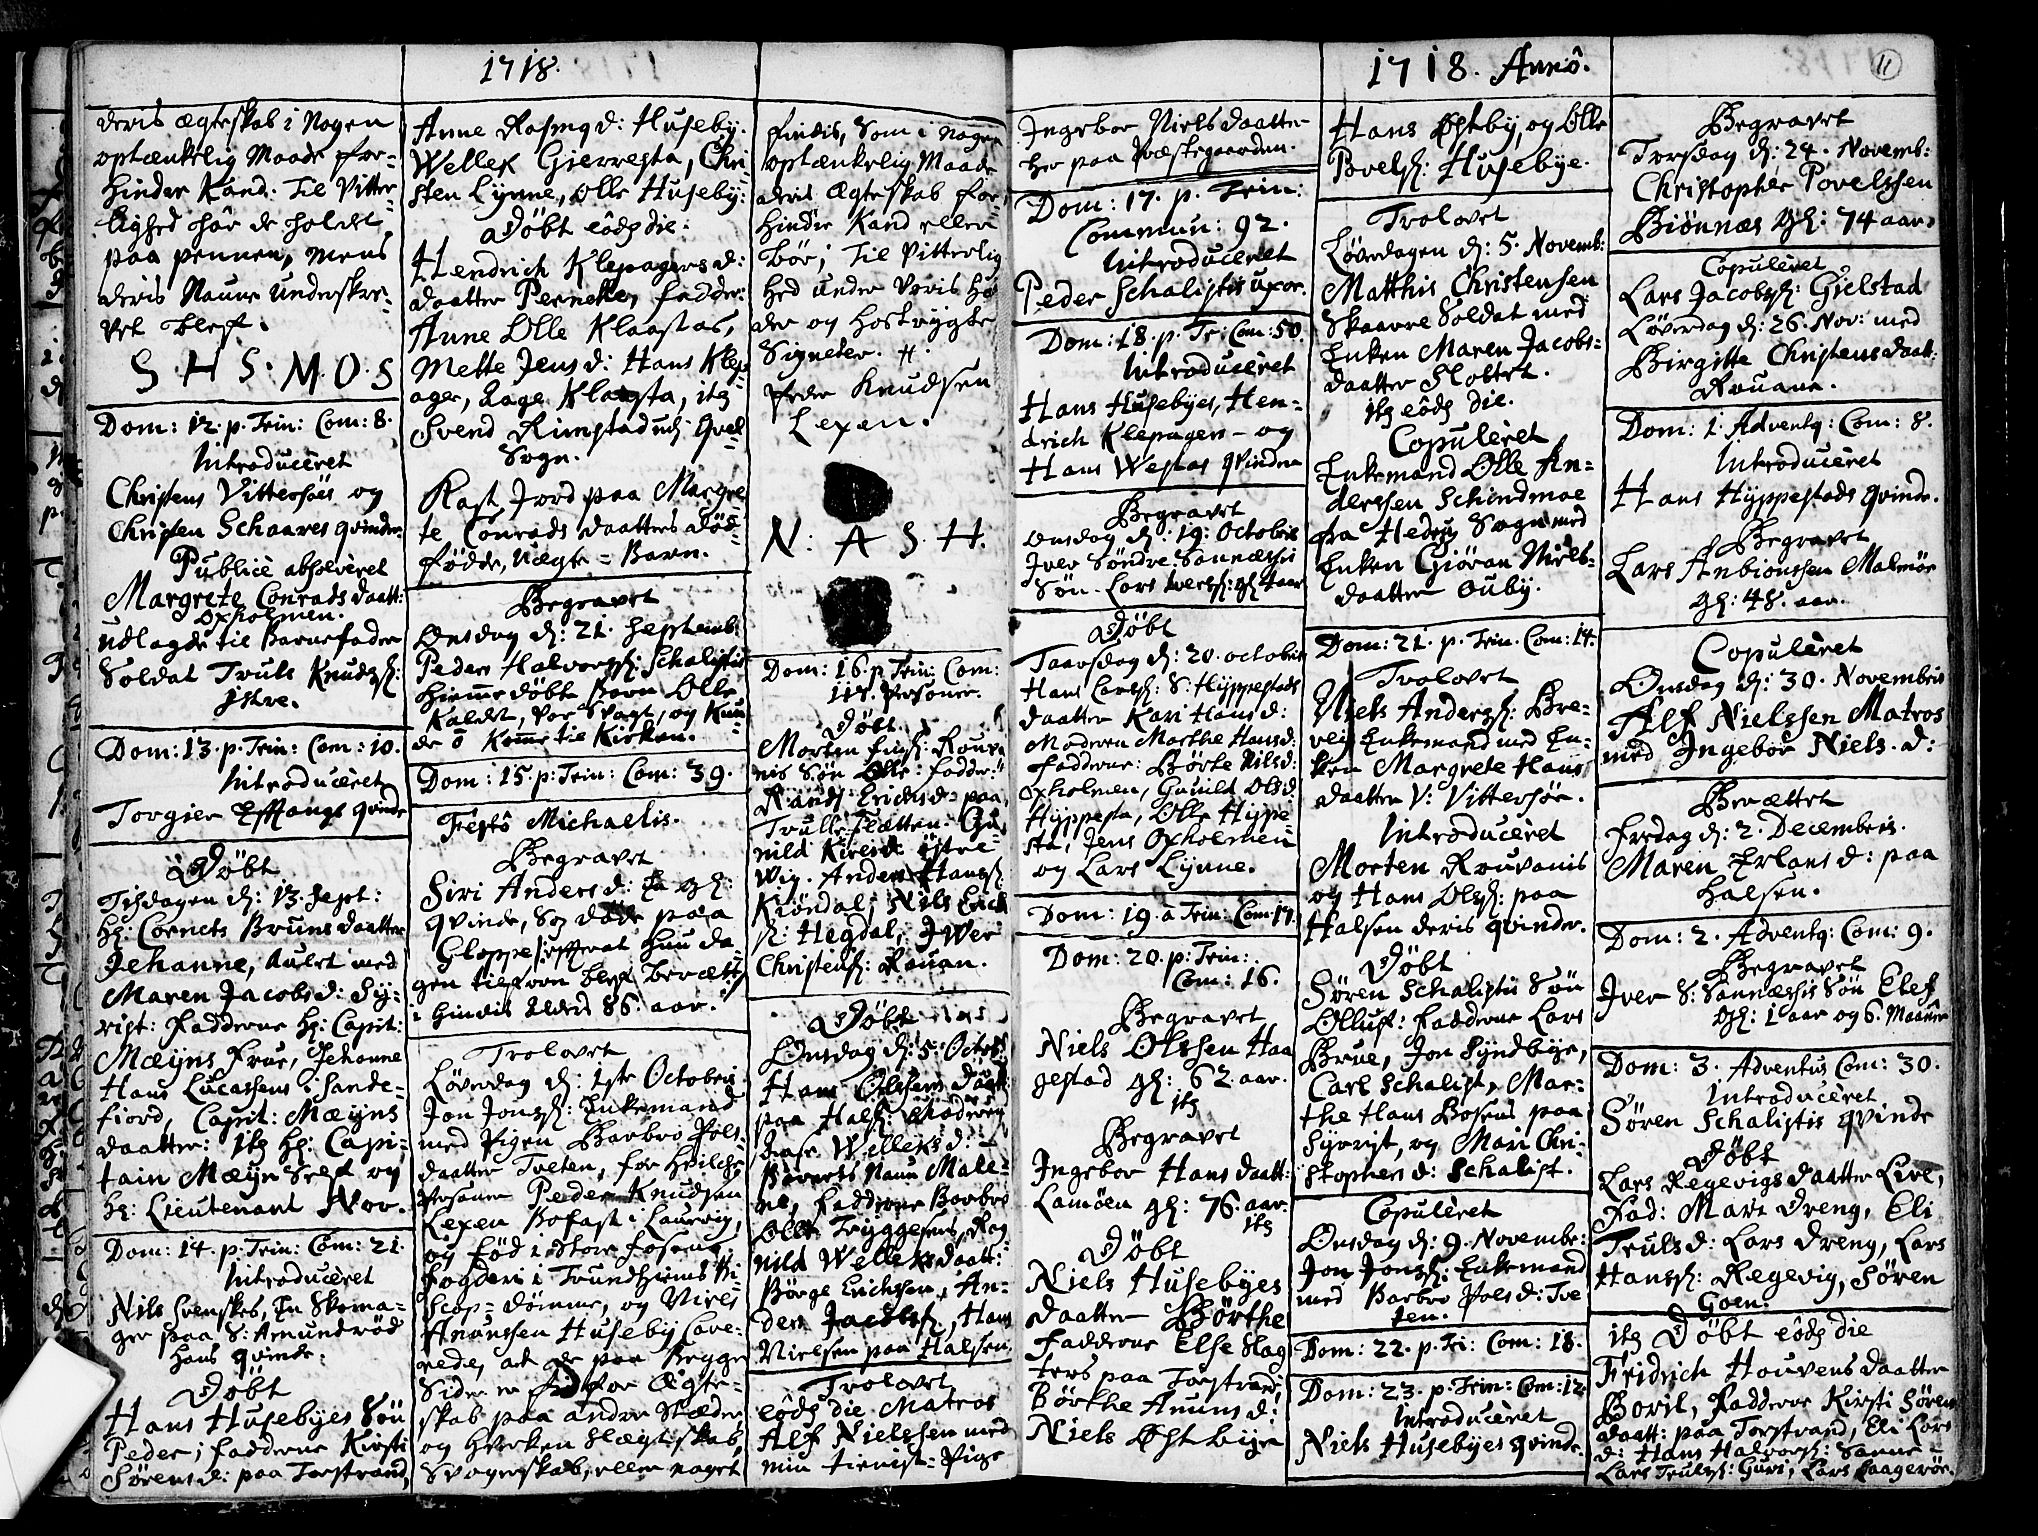 1718.
deris ægteskab i Nogen
optænkelig Maade for-
hinder Kand: Til Vitter-
lighed har de holdet
paa pennen, mens
deris Naune underskre-
vet blef.
S. H S: M. O. S
Dom: 12. p. Trin: Com: 8.
Introduceret
Christens Vittersøes og
Christen Schaares qvinder
Publice absolveret
Margrete Conradsdaatt:
Oxholmen.
udlagde til Barnefader
Soldat Truls Knuds:
Istre.
Dom: 13. p. Trin: Com: 10.
Introduceret
Torgier qvinde
Døbt
Tisdagen d: 13. Sept:
Hr: Cornets Bruns daatter
Jehanne, Aulet med
Maren Jacobsd:
Fadderne Hr: Capit:
Mæyns Frue, Jehanne
Hans Lucassens i Sande-
fiord, Capit: Mæyns
daatter: Hr: Capi-
tain Mæyn Self og
Hr: Lieutenant Nor.
Dom: 14. p. Trin: Com: 21.
Introduceret
Nils Svenskes, En Skoma-
ger paa S: Amundrød
Hans qvinde.
Døbt
Hans Husebyes Søn
Peder; Fadderne Kirsti
Sørensd: paa Torstrand,
Anne Rasmusd: Huseby.
Wellek Gierresta, Chri-
sten Lynne, Olle Huseby:
Døbt eod: die:
Hendrich Klepagers d:
daatter Pernelle, fadder:
Anne Olle Klaastas,
Mette Jensd: Hans Klep-
ager, Aage Klaasta,
Svend Rimstad
Sogn.
Kast Jord paa Margre-
te Conrads daatters død-
fødde, uægte = Barn.
Begravet
Onsdag d: 21. Septemb:
Peder Halvors: Schalistis
Hiemmedøbte Barn Olle
Kaldet, var Svagt, og Kun-
de ei Komme til Kirken.
Dom: 15. p: Trin: Com: 39.
Festo Michaelis.
Begravet
Siri Andersd:
qvinde, døde paa
Gloppe, hun da-
gen tilforn blef berættet
i hindis Alders 86. aar.
Trolovet
Løverdag d: 1ste Octobris
Jon Jons: Enkemand
med Pigen Barbro Pols-
daatter Tveten, for hvilche
Persaner Peder Knudsen
Lexen Bofast i Laurvig,
og fød i Store Fosens
Fogderi i Trundhiems Bi-
scop = dømme, og Niels
Anunssen Huseby Cave-
rede, at de paa Begge
Sider er fri for Ægte-
skab paa andre Stæder
og hverken Slegtskab,
Svogerskab, eller noget
findis, Som i nogen
optænkelig Maade
deris Ægteskab for-
hindre Kand eller
bør; Til Vitterlig-
hed under Voris Hæ-
der og hostrygte
Signeter.
Peder Knudsen
Lexen.
N: A S. H.
Dom: 16. p. Trin: Com:
Persaner.
Døbt
Morten Rouva-
nis Søn Olle: fadder:
Ericksd: paa
Trulle Flætten: Gu-
nild
Anders Hans:
Kiøndal; Nils Erick-
s: Hegdal, Iver
Christens: Rouan.
Døbt
Onsdag d: 5. Octob:
Hans Olssens daatt:
paa Halsen Moderen
Welleksd:
Barnets Naun Male-
ne, Fadderne Barbro
Olle Tryggesens, Rag-
nild Welleksdaatt:
Børge Erichsen, An-
ders Jacobs: Hans
Nielsen paa Halsen.
Trolovet
eod: die Matros
Alf Nielssen med
min tienist = Pige
1718. Anno.
11
Ingebor Niels daatter
her paa Præstegaarden.
Dom: 17. p. Trin:
Commun: 92.
Introduceret
Peder Schalistis uxor.
Dom: 18. p. Tr: Com: 50.
Introduceret
Hans Husebyes, Hen-
drich Klepagers - og
Hans Westas qvinder
Begravet
Onsdag d: 19. Octobris
Iver Søndre Sannæssis
Søn Lars Ivers: gl: aar
Døbt
Taarsdag d: 20. october
Hans Lars: S: Hyppestads
daatter Kari Hansd:
Moderen Marthe Hansd:
Fadderne: Børte Nilsd:
Oxholmen, Gunild Olsd:
Hyppesta, Olle Hyppe-
sta, Jens Oxholmen
og Lars Lynne.
Dom: 19. a Trin: Com: 17.
Dom: 20. p. Trin:
Com: 16.
Begravet
Niels Olssen Haa-
gestad gl: 62. aar.
Begravet
Ingebor Hansdaatt:
Lamøen gl: 76. aar
Døbt
Niels Husebyes
daatter Børthe
Fadderne Else Slag-
ters paa Torstrand,
Børthe Anunsd:
Niels Østbye
Hans Østby, og Olle
Povels: Husebye.
Trolovet
Løverdagen d: 5. Novemb:
Matthis Christensen
Skaarre Soldat med
Enken Maren Jacobs-
daatter Slottet.
eod: die.
Copuleret
Enkemand Olle An-
derssen Schindmoe
fra Hedrum Sogn med
Enken Giøran Niels-
daatter Ouby.
Dom: 21. p. Trin. Com: 14.
Trolovet
Niels Anders: Bre-
vei Enkemand med En-
ken Margrete Hans
daatter V: Vittersøe.
Introduceret
Morten Rouvanis
og Hans Ols: paa
Halsen deris qvinder.
Døbt
Søren Schalistis Søn
Olluf: fadderne Lars
Brue, Jon Syndbye,
Carl Schalist, Mar-
the Hans Bosens paa
og Mari Chri-
stophersd: Schalist.
Copuleret
Onsdag d: 9. Novembr:
Jon Jons: Enkemand
med Barbro Polsd: Tve-
ten.
Dom: 22. p. Tri: Com: 18.
Dom: 23. p. Trin: Com: 12
Introduceret
Niels Husebyes qvinde.
Begravet
Torsdag d: 24. Novemb:
Christopher Povelssen
Biønnæs gl: 74 aar
Copuleret
Lars Jacobs: Gielstad
Løverdag d: 26. Nov: med
Birgitte Christensdaatt:
Rouane.
Dom: 1. Advents: Com: 8.
Introduceret
Hans Hyppestads qvinde.
Begravet
Lars Anbiønssen Malmøe
gl: 48. aar.
Copuleret
Onsdag d: 30. Novembris
Alf Nielssen Matros
med Ingebor Niels. d:
Berættet
Fredag d: 2. Decembris.
Maren Erlansd: paa
Halsen.
Dom: 2. Advents: Com: 9.
Begravet
Iver S: Sannæssis Søn Elef
gl: 1 aar og 6. Maaner
Dom: 3. Adventus Com: 30.
Introduceret
Søren Schalistis qvinde
Døbt
Lars Regevigs daatter Live,
Fad: Mari Dreng, Eli
Trulsd: Lars Dreng, Lars
Hans: Regevig, Søren
Goen.
Døbt eod: die
Fridrich Houvens daatter
Boril, Fadderne Kirsti Sørens
daatt: paa Torstrand, Eli Lars
d: Hans Halvors: Sanne-
Lars Truls: Guri, Lars Laagerøe.